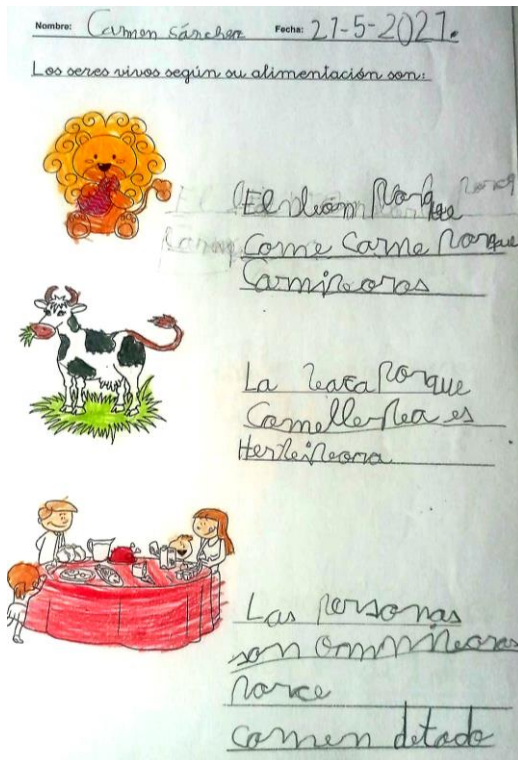 Nombre: Carmen Sánchez Fecha: 27-5-2021.
Los seres vivos según su alimentación son:
El león Porque
Come Carne Porque
Carnivoros
La vaca Porque
Come lle rva es
Hervivora
Las personas
son omnivoras
porce
comen detodo